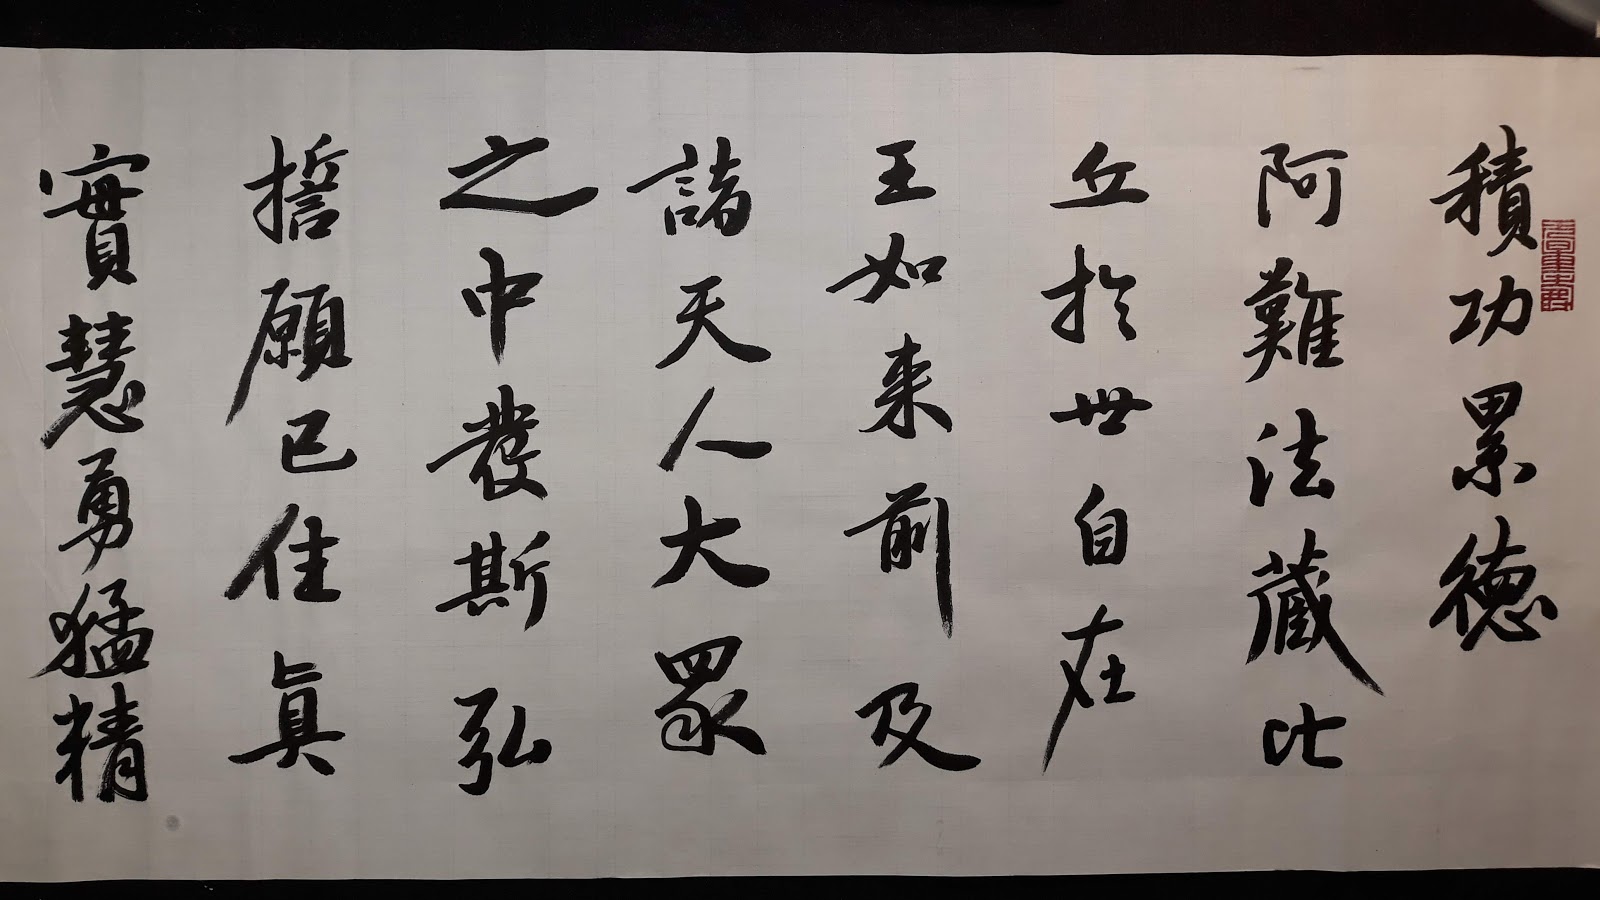 積功累德
阿難法藏比
丘於世自在
王如来前及
諸天人大眾
之中發斯弘
誓願已住真
實慧勇猛精